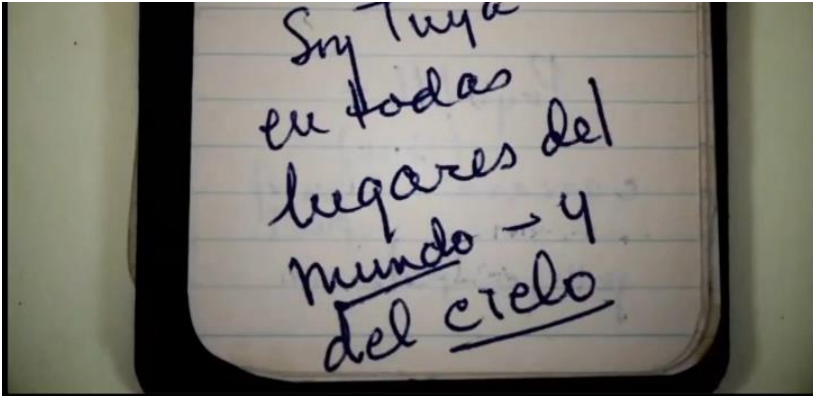 Soy Tuya
en todas
lugares del
mundo → y
del cielo